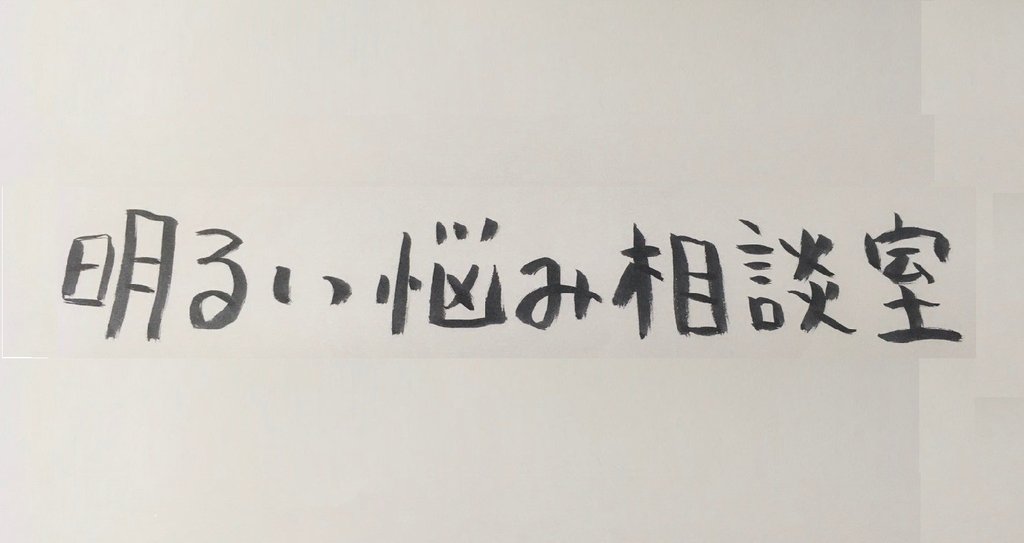 明るい悩み相談室